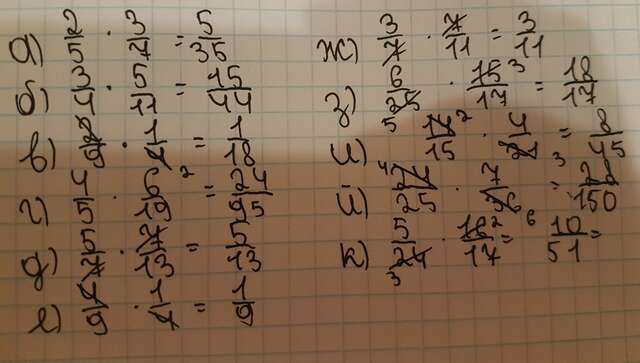 а) 2/5 · 3/7 = 5/35
б) 3/4 · 5/11 = 15/44
в) 2/9 · 1/4 = 1/18
г) 4/5 · 6²/19 = 24/95
д) 5/7 · 7/13 = 5/13
е) 4/9 · 1/4 = 1/9
ж) 3/7 · 7/11 = 3/11
з) 6/25 5 · 15³/17 = 18/17
и) 14²/15 · 4/21 3 = 8/45
й) ⁴24/25 · 7/36 6 = 28/150
к) 5/24 3 · 16²/17 = 10/51 =